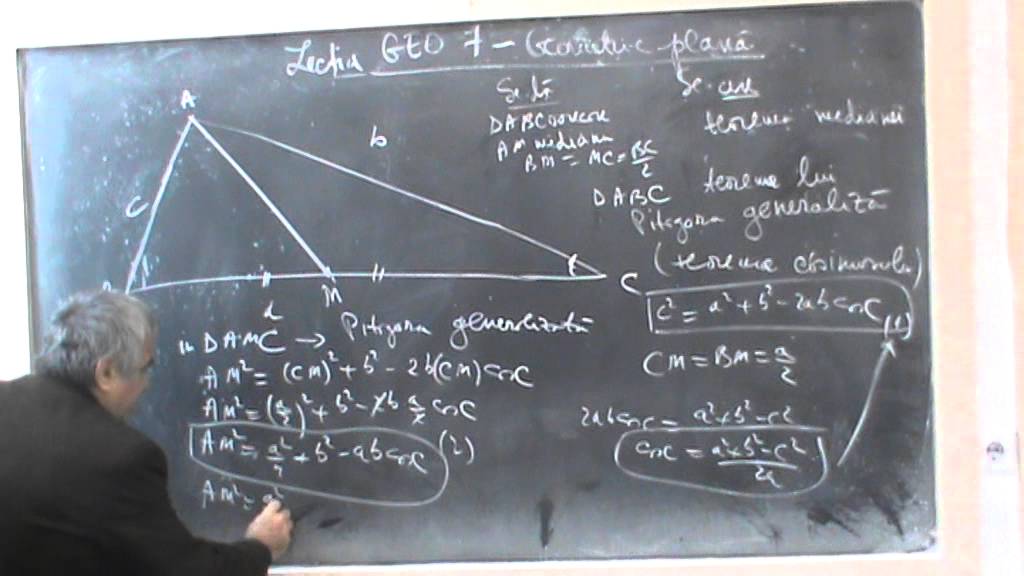 Lecția GEO 7 - Geometrie plană
A
b
c
M
C
a
Se dă
Δ ABC oarecare
AM mediana
BM = MC = BC/2
Se cere
teorema medianei
Δ ABC teorema lui
Pitagora generaliză
(teorema cosinusului)
c² = a² + b² - 2ab cos C (1)
CM = BM = a/2
2ab cos C = a² + b² - c²
cos C = a² + b² - c² / 2a
in Δ AMC → Pitagora generalizată
AM² = (CM)² + b² - 2b(CM) cos C
AM² = (a/2)² + b² - 2b a/2 cos C
AM² = a²/4 + b² - ab cos C (2)
AM² = a²